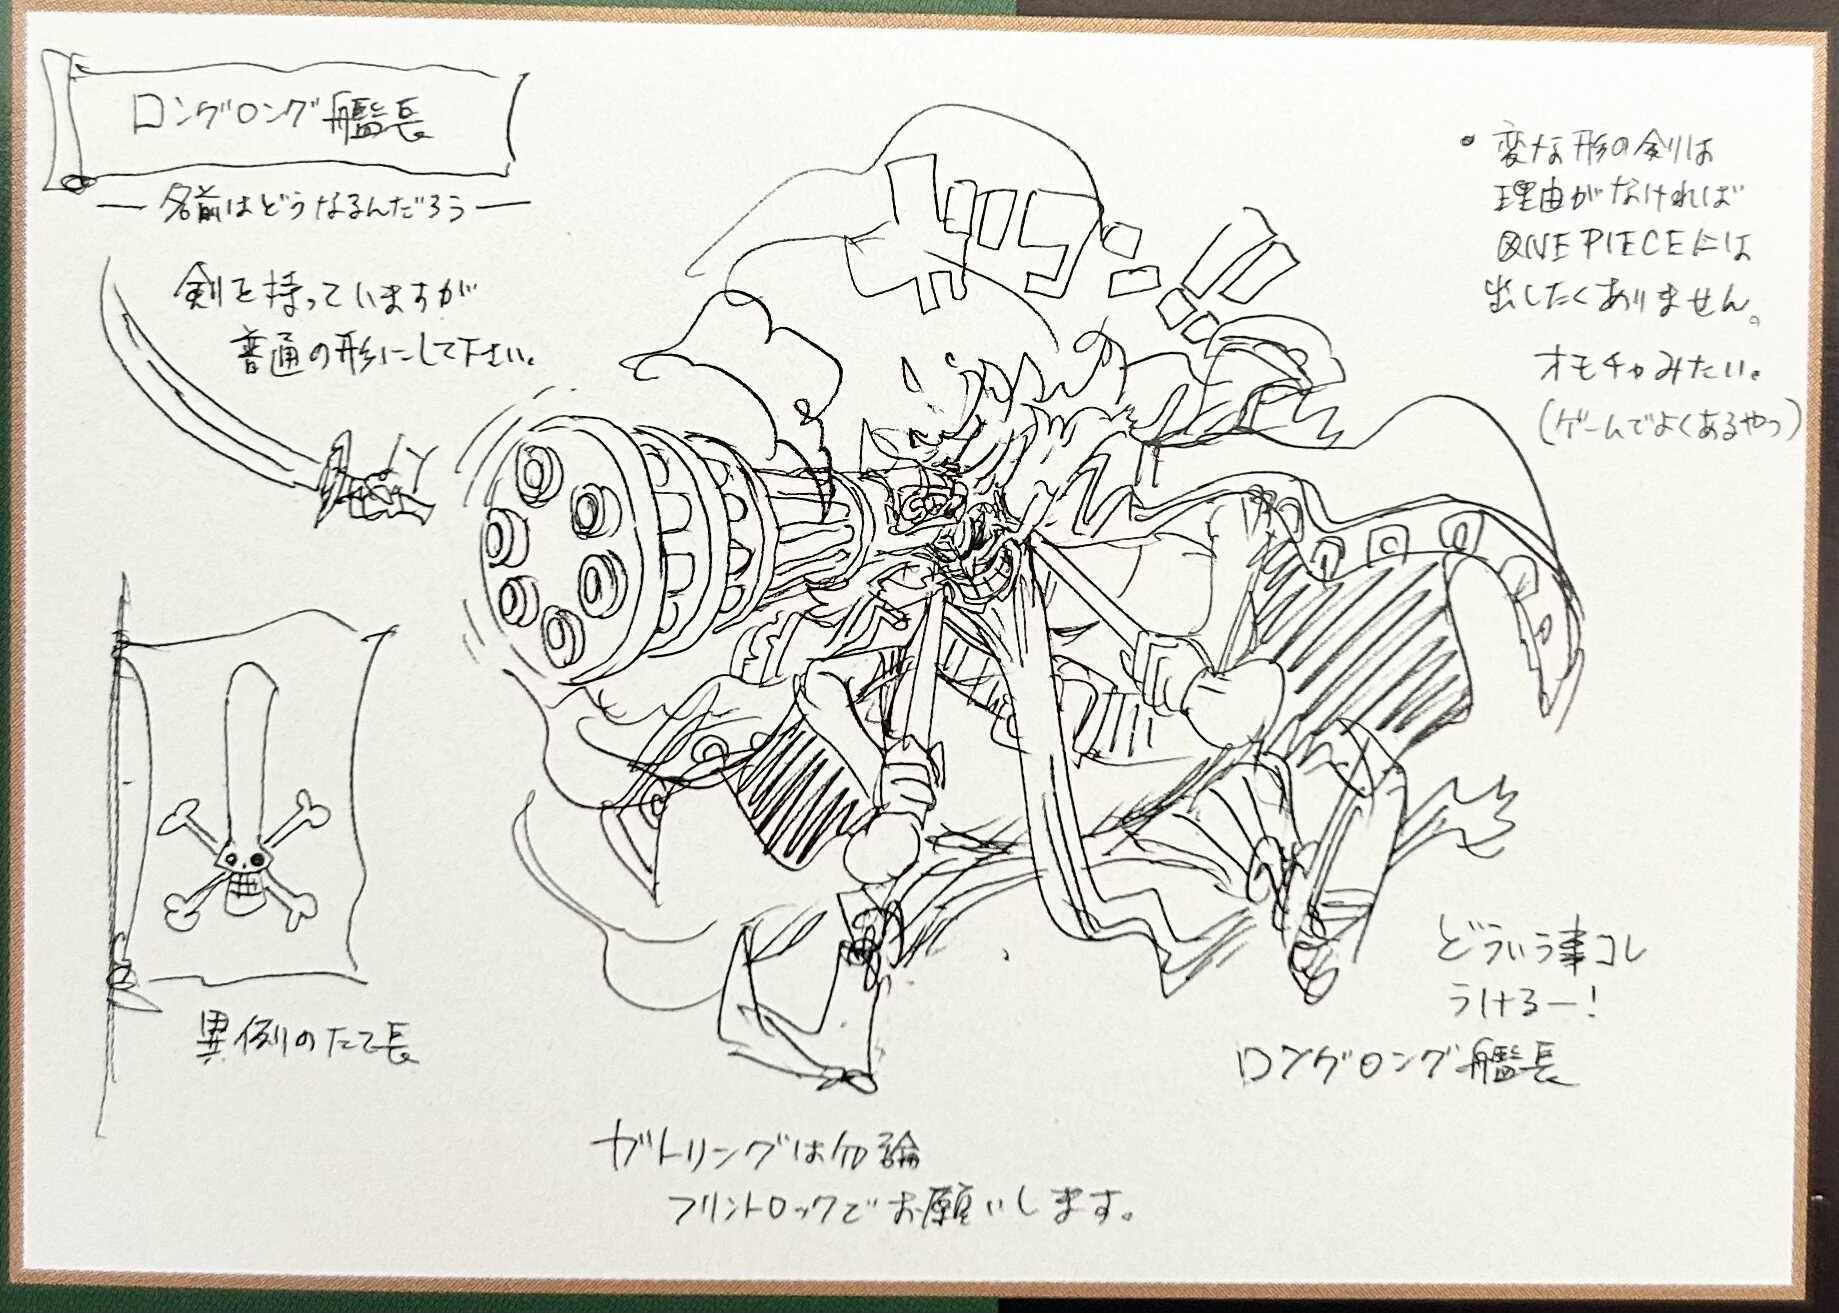 ロングロング艦長
― 名前はどうなるんだろう ―
剣を持っていますが
普通の形にして下さい。
異例のたて長
• 変な形の剣は
理由がなければ
ONE PIECEには
出したくありません。
オモチャみたい。
(ゲームでよくあるやつ)
どういう事コレ
うけるー!
ロングロング艦長
ガトリングは勿論
フリントロックでお願いします。